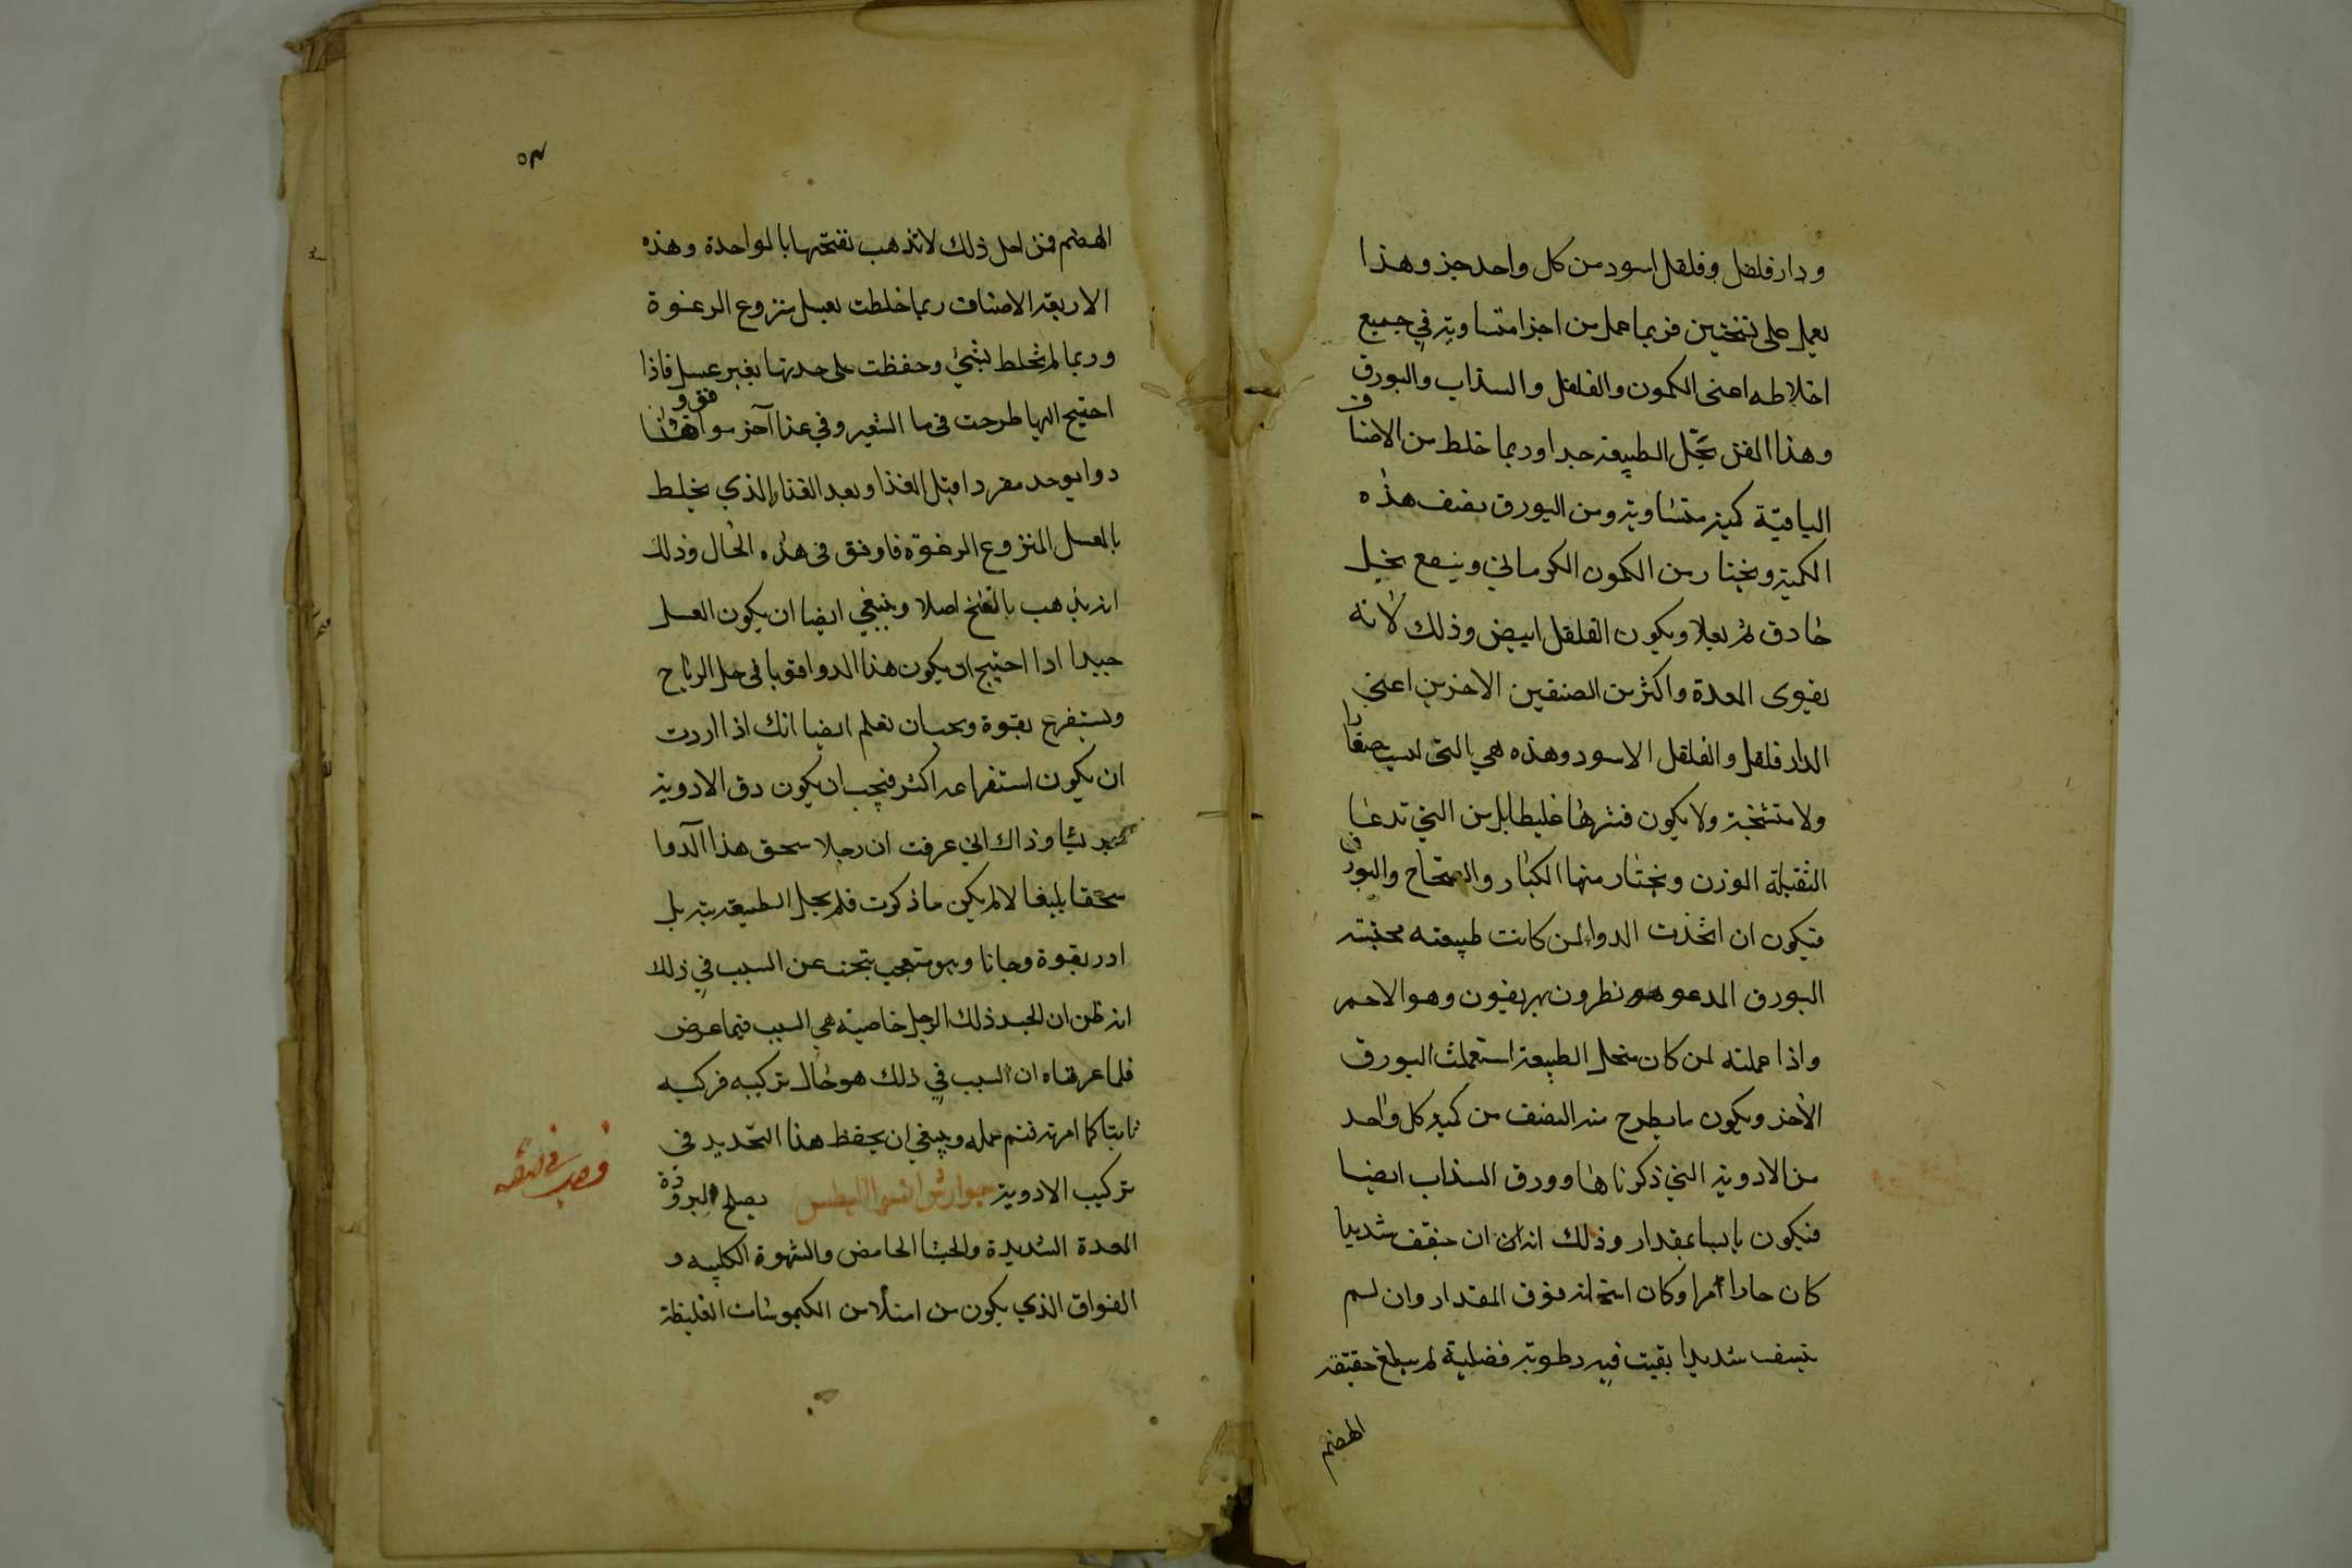 ودارفلفل وفلفل اسود من كل واحد جز وهذا
يعمل على نسختين فربما عمل من اجزا متساوية في جميع
اخلاطه اعنى الكمون والفلفل والسذاب والبورق
وهذا الفن يحل الطبيعة جدا وربما خلط من الاصناف
الباقية كمية متساوية ومن البورق نصف هذه
الكمية ويختار من الكمون الكرماني وينقع بخل
حاذق ثم يقلا ويكون الفلفل ابيض وذلك لانه
يقوى المعدة واكثر من الصنفين الاخرين اعنى
الدارفلفل والفلفل الاسود وهذه هي التى ليست صغارا
ولا متشنجة ولا يكون قشرها غليظا بل من التي تدعا
الثقيلة الوزن ويختار منها الكبار والصحاح والبورق
فيكون ان اتخذت الدوا لمن كانت طبيعته محتبسة
البورق المدعو نطرون وهو الاحمر
واذا عملته لمن كان منحل الطبيعة استعملت البورق
الاخر ويكون ما يطرح منه النصف من كمية كل واحد
من الادوية التي ذكرناها وورق السذاب ايضا
فيكون يابسا بمقدار وذلك انه ان جفف شديدا
كان حادا مرا وكان اسخانه فوق المقدار وان لم
ييبس شديدا بقيت فيه رطوبة فضلية لم يبلغ حقيقة
الهضم
٥٣
الهضم فمن اجل ذلك لا تذهب نفختها بالواحدة وهذه
الاربعة الاصناف ربما خلطت بعسل منزوع الرغوة
وربما لم تخلط بشئ وحفظت على حدتها بغير عسل فاذا
احتيج اليها طرحت فى ما الشعير وفي غذا آخر
دوا يوخد مفردا قبل الغذا وبعد الغذا والذي يخلط
بالعسل المنزوع الرغوة فاوفق فى هذه الحال وذلك
انه يذهب بالنفخ اصلا وينبغي ايضا ان يكون العسل
جيدا اذا احتيج ان يكون هذا الدوا قويا فى حل الرياح
ويستفرغ بقوة ويجب ان تعلم ايضا انك اذا اردت
ان يكون استفراغه اكثر فيجب ان يكون دق الادوية
جريشا وذاك انى عرفت ان رجلا سحق هذا الدوا
سحقا بليغا لا لم يكن ما ذكرت فلم يحل الطبيعة بتة بل
ادر بقوة وجانا وهو متعجب يبحث عن السبب في ذلك
انه ظن ان لجسد ذلك الرجل خاصية هي السبب فيما عرض
فلما عرفناه ان السبب في ذلك هو حال تركيبه فركبه
ثانيا كما امرته فتم عمله وينبغي ان يحفظ هذا التحديد فى
تركيب الادوية جوارش يصلح لبرودة
المعدة الشديدة والجشا الحامض والشهوة الكلبية و
الفواق الذي يكون من امتلا من الكيموسات الغليظة